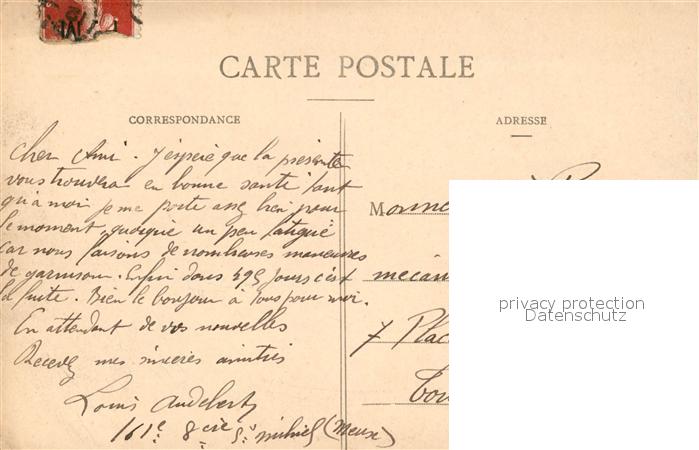 CARTE POSTALE
CORRESPONDANCE
ADRESSE
Cher Ami. J'espère que la présente
vous trouvera en bonne santé tant
qu'à moi je me porte assez bien pour
le moment, quoique un peu fatigué
car nous faisons de nombreuses manœuvres
de garnison. Enfin dans 59e jours c'est
la fuite. Bien le bonjour à tous pour moi.
En attendant de vos nouvelles
Recevez mes sincères amitiés
Louis Audebert
161e 8e Cie St Mihiel (Meuse)
M
mécan
7 Plac
privacy protection
Datenschutz